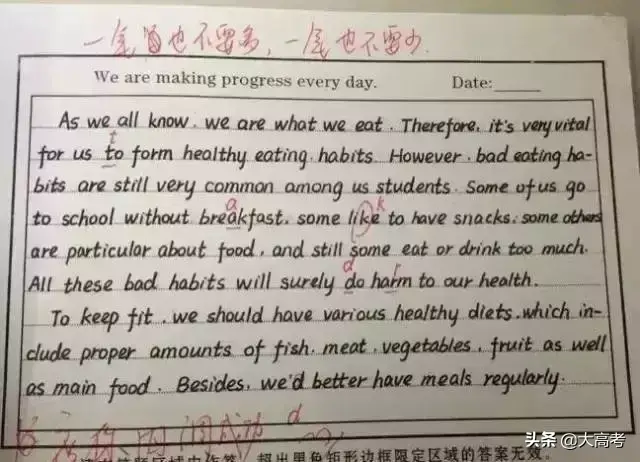 一尾也不要多，一尾也不要少.
We are making progress every day. Date:
As we all know, we are what we eat. Therefore, it's very vital
t
for us to form healthy eating habits. However, bad eating ha-
bits are still very common among us students. Some of us go
a k
to school without breakfast, some like to have snacks, some others
are particular about food, and still some eat or drink too much.
d r
All these bad habits will surely do harm to our health.
To keep fit, we should have various healthy diets, which in-
clude proper amounts of fish, meat, vegetables, fruit as well
as main food. Besides, we'd better have meals regularly.
成功 d
超出黑色矩形边框限定区域的答案无效。
头条 @大高考